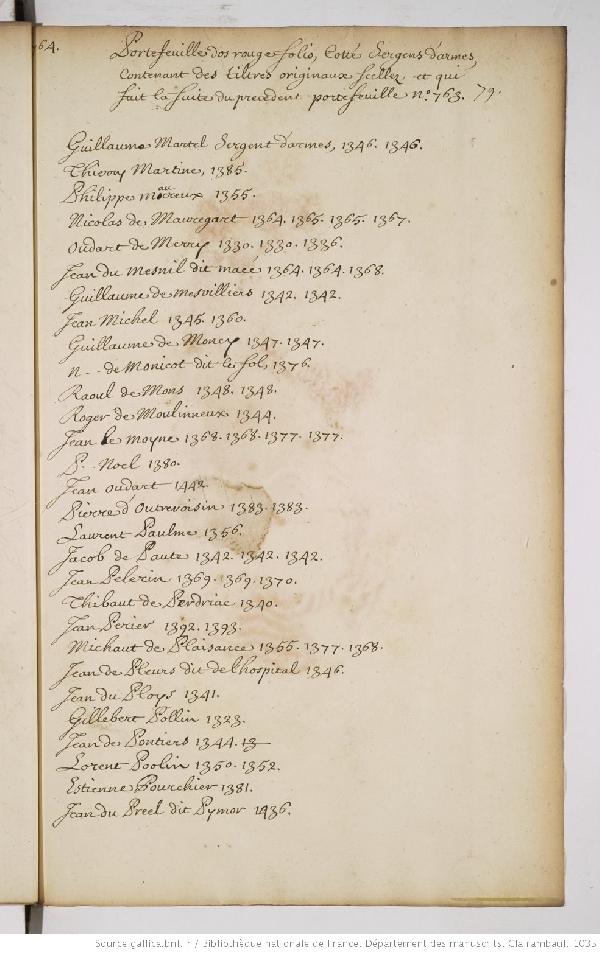 764.
Portefeuille dos rouge folio, Cotté Sergens d'armes,
Contenant des tiltres originaux scellez, et qui
fait la suite du precedent portefeuille n.º 763. 79.
Guillaume Martel Sergent d'armes, 1346. 1346.
Thierry Martine, 1385.
Philippe moireux 1355.
Nicolas de Mauregart 1364. 1365. 1365. 1367.
Oudart de Merry 1330. 1330. 1336.
Jean du mesnil dit macé 1364. 1364. 1368.
Guillaume de mesvilliers 1342. 1342.
Jean Michel 1345. 1360.
Guillaume de Moncy 1347. 1347.
N.. de Monicot dit le fol, 1376.
Raoul de Mons 1348. 1348.
Roger de Moulinneux 1344.
Jean le moyne 1368. 1368. 1377. 1377.
P.. Noel 1380.
Jean oudart 1442.
Pierre d'Outrevoisin 1383. 1383.
Laurent Paulme 1356.
Jacob de Paute 1342. 1342. 1342.
Jean Pelerin 1369. 1369. 1370.
Thibaut de Perdriac 1340.
Jean Perier 1392. 1393.
Michaut de Plaisance 1355. 1377. 1368.
Jean de Pleurs dit de lhospital 1346.
Jean du Ploys 1341.
Gillebert Pollin 1323.
Jean de Pontiers 1344. 13
Lorent Poolin 1350. 1352.
Estienne Pourchier 1381.
Jean du Preel dit Pymor 1436.
Source gallica.bnf.fr / Bibliothèque nationale de France. Département des manuscrits. Clairambault 1035